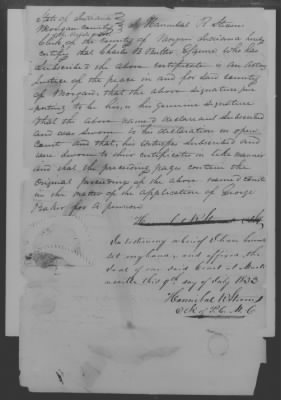 State of Indiana
Morgan County I Hannibal R Stevens
Clerk of the County of Morgan Indiana hereby
certify that Charles B Butler Esquire who has
Subscribed the above certificate is an Acting
Justice of the peace in and for said County
of Morgan, that the above signature pur
porting to be his, is his genuine signature
that the above named declarant subscribed
and was sworn to his declaration in open
Court and that, his witnesses subscribed and
were sworn to their certificates in like manner
and that the preceeding pages contain the
Original proceedings of the above named Court
in the matter of the application of George
Baker for a pension
In testimony whereof I have hereunto
set my hand, and affixed, the
Seal of our said Court at Marti
nsville this 9th day of July 1833
Hannibal R Stevens
Clk of P. C. M. C